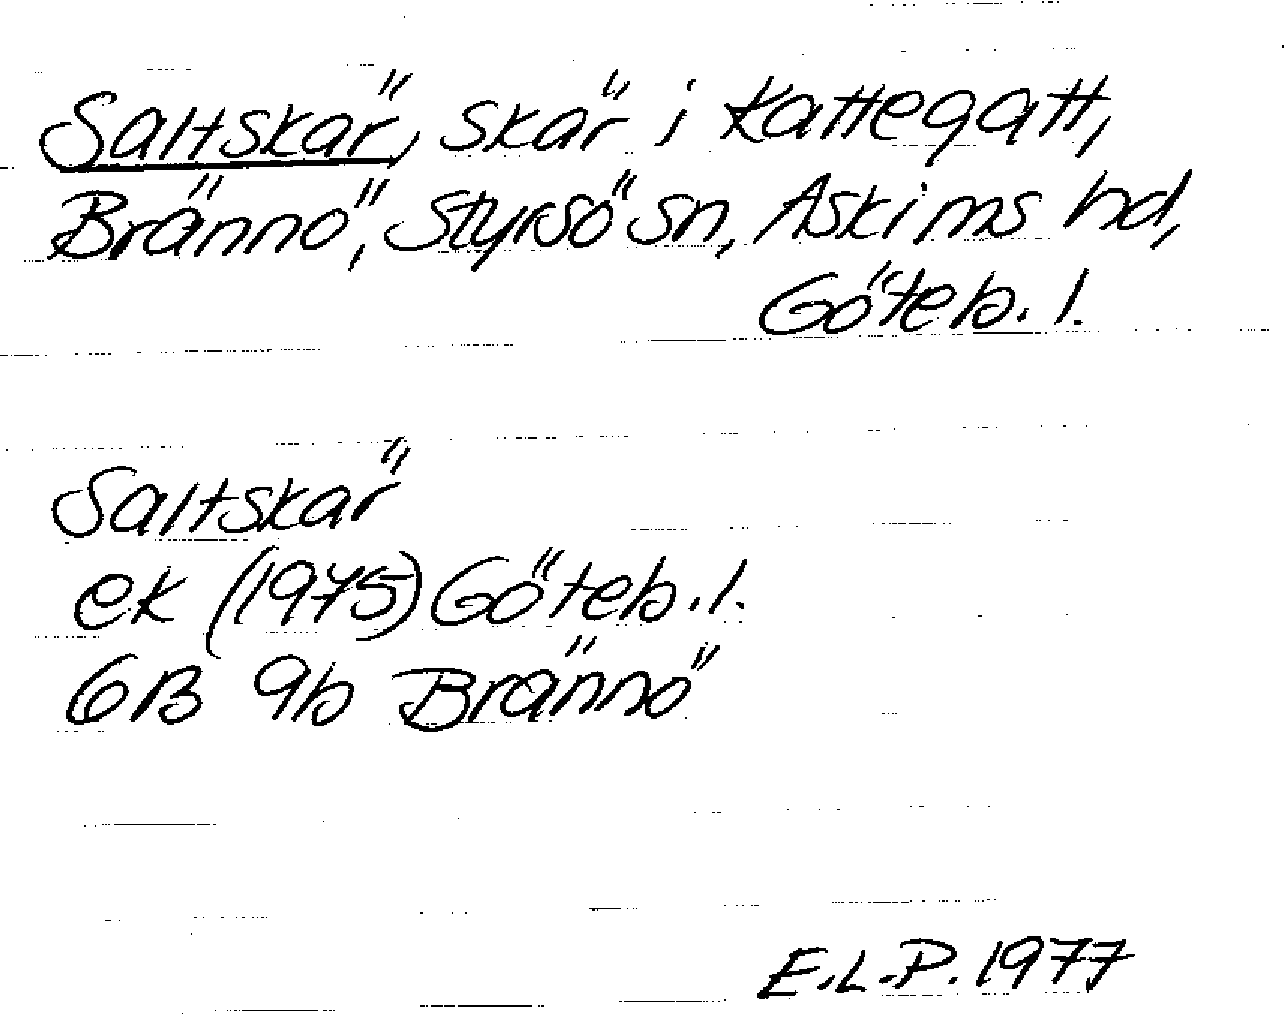 Saltskär, skär i Kattegatt,
Brännö, Styrsö sn, Askims hd,
Göteb. l.
Saltskär
ek (1975) Göteb. l.
6B 9b Brännö
E.L.P. 1977